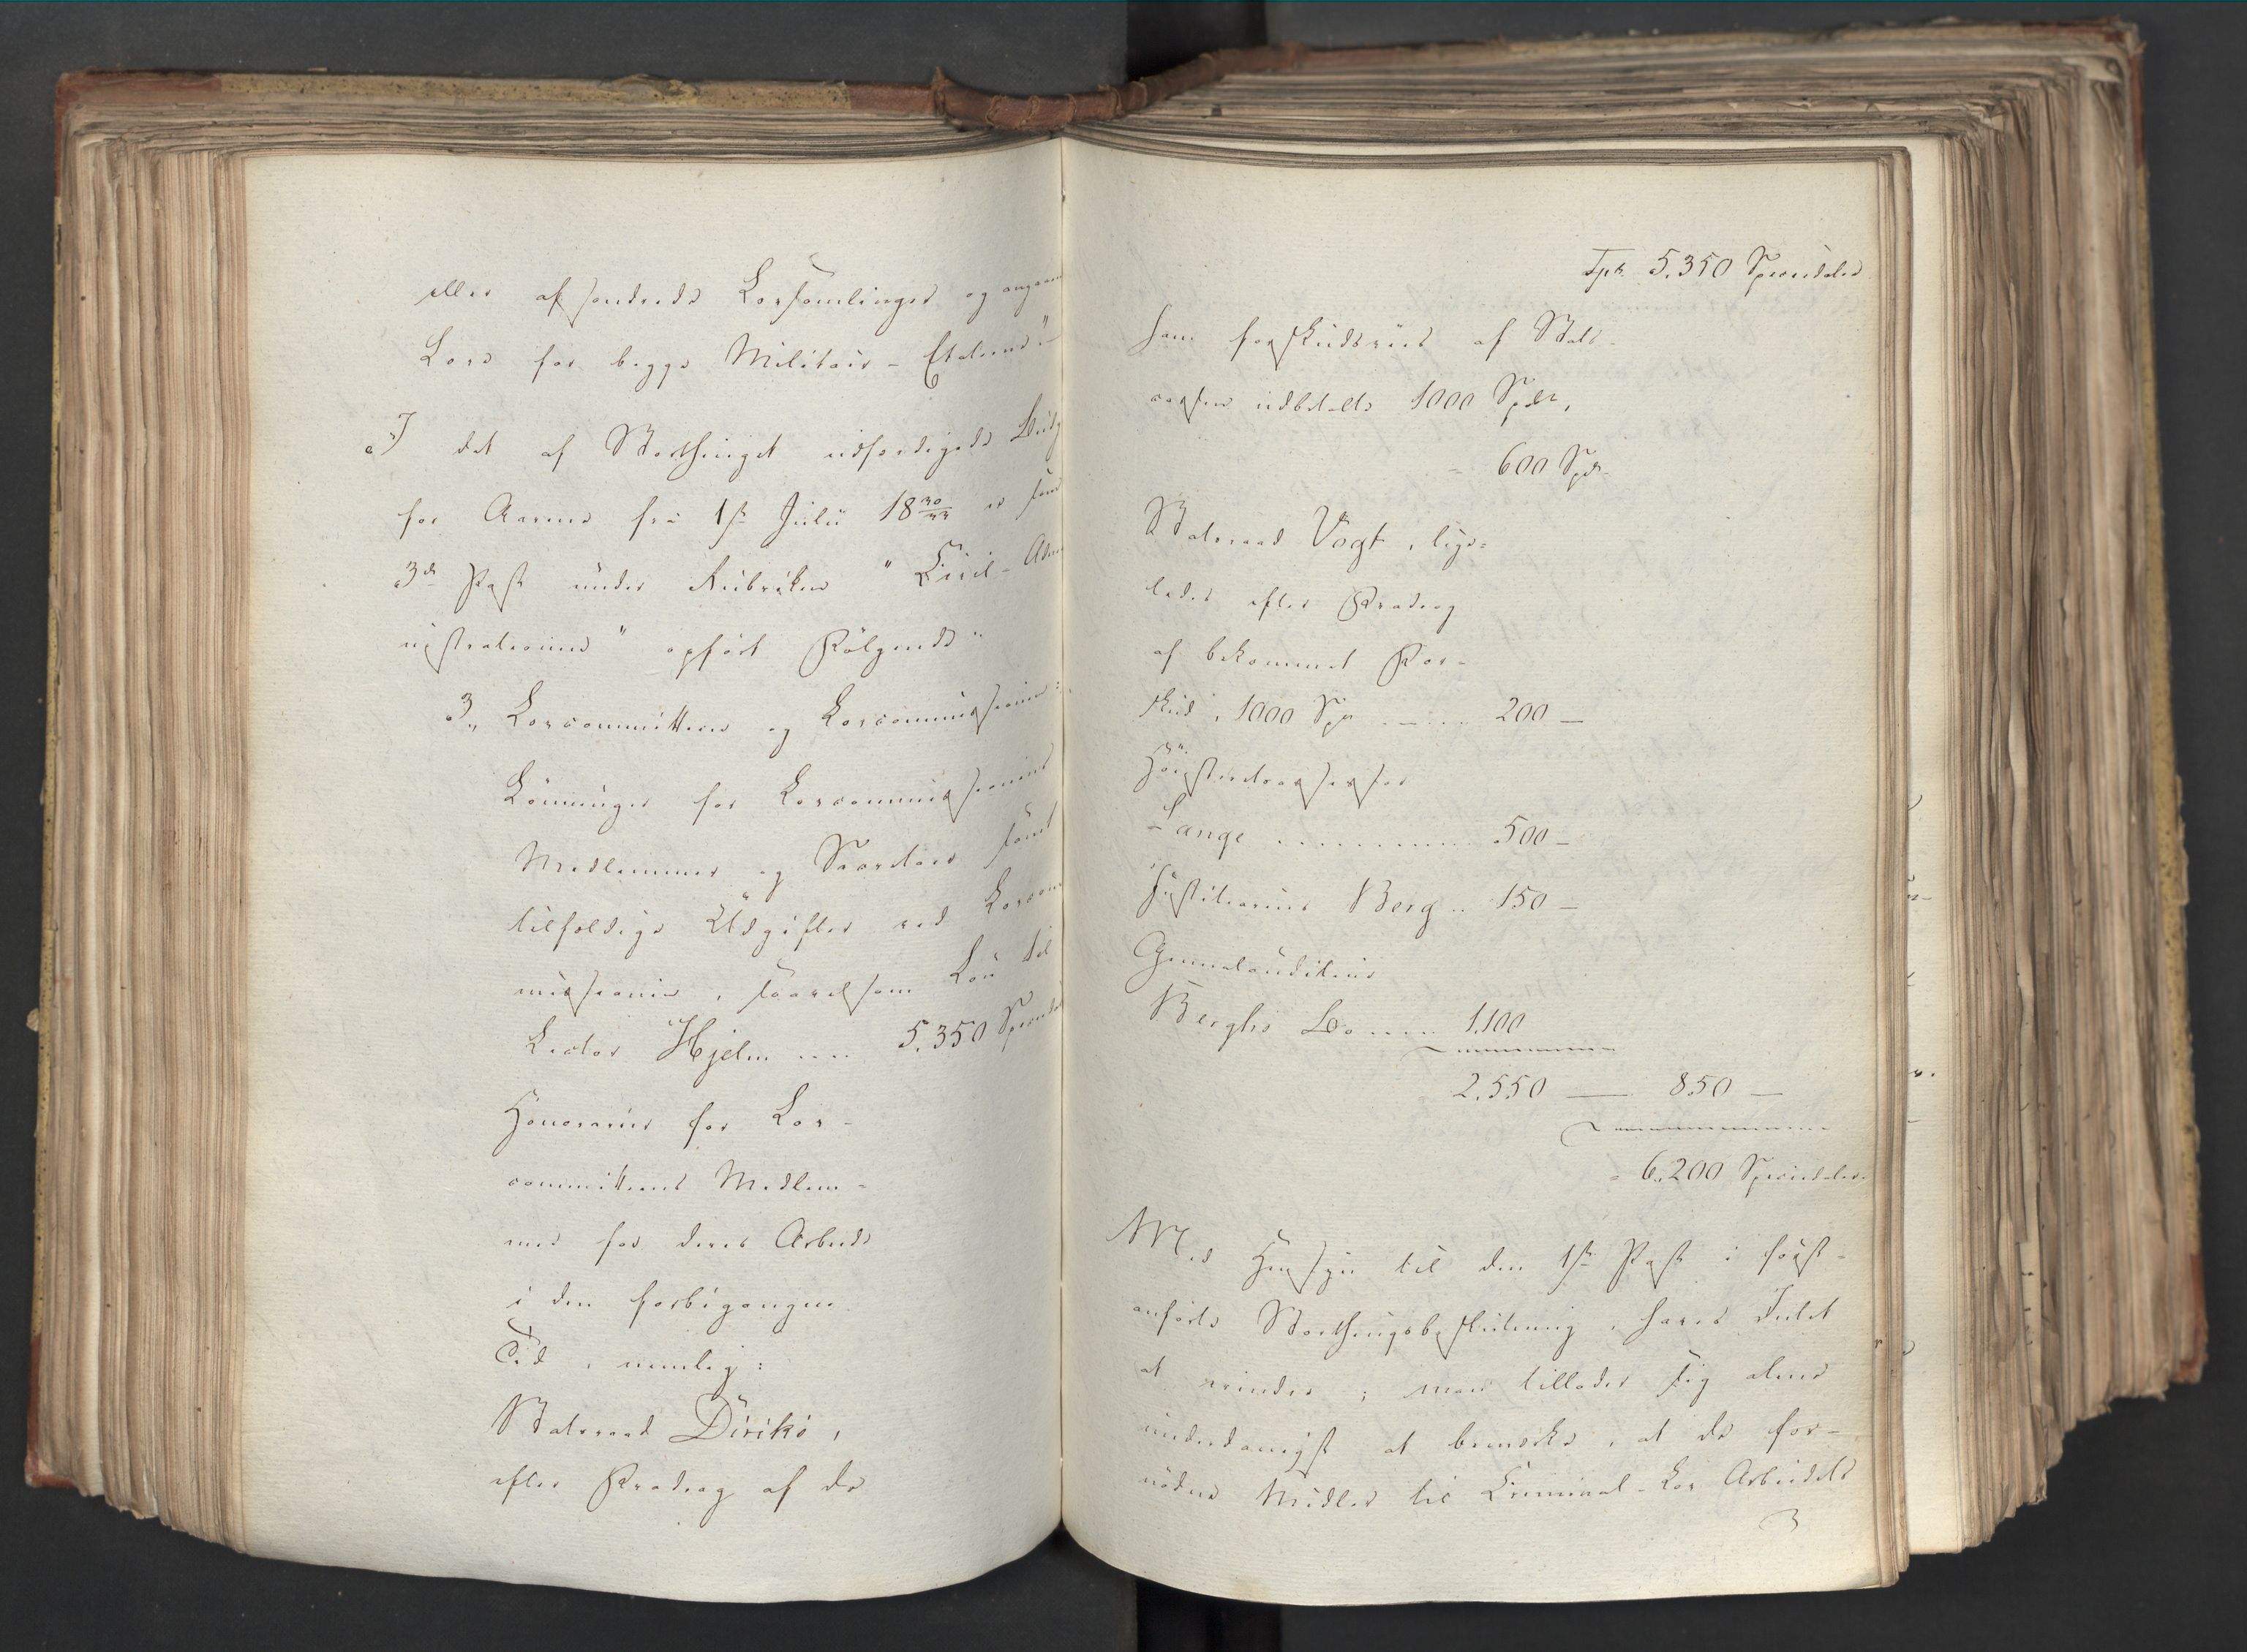 eller afsondrede Lovsamlinger og
Love for begge Militair-Etaterne"
"I det af Storthinget udfærdigede
for Aarene fra 1ste Julii 18 30/33 er som
3die Post under Rubriken "Civil-Admi
nistrationen" opført Følgende"
3., Lovcommitteen og Lovcommissionen:
Lønninger for Lovcommissionens
Medlemmer og Secretair samt
tilfældige Udgifter ved Lovcom
missionen, saavelsom Løn til
Lector Hjelm .... 5.350 Speciedal
Honorarier for Lov-
committeens Medlem-
mer for deres Arbeide
i den forbigangne
Tid, nemlig:
Statsraad Diriks,
efter Fradrag af de
Tpt. 5.350 Speciedaler
ham forskudsviis af Stats-
cassen udbetalte 1000 Spdr,
- 600 Spdr.
Statsraad Vogt, lige=
ledes efter Fradrag
af bekommet For-
skud, 1000 Spd ....... 200 —
Høiesteretsassessor
Lange .......... 500 —
Justitiarius Berg .. 150 —
Generalauditeur
Berghs Bo .... 1.100
2.550 — 850 —
- 6.200 Speciedaler.
Med Hensyn til den 1ste Post i først-
anførte Storthingsbeslutning, haves Intet
at erindre; man tillader sig alene
underdanigst at bemærke, at de for-
nødne Midler til Criminal-Lov Arbeidets